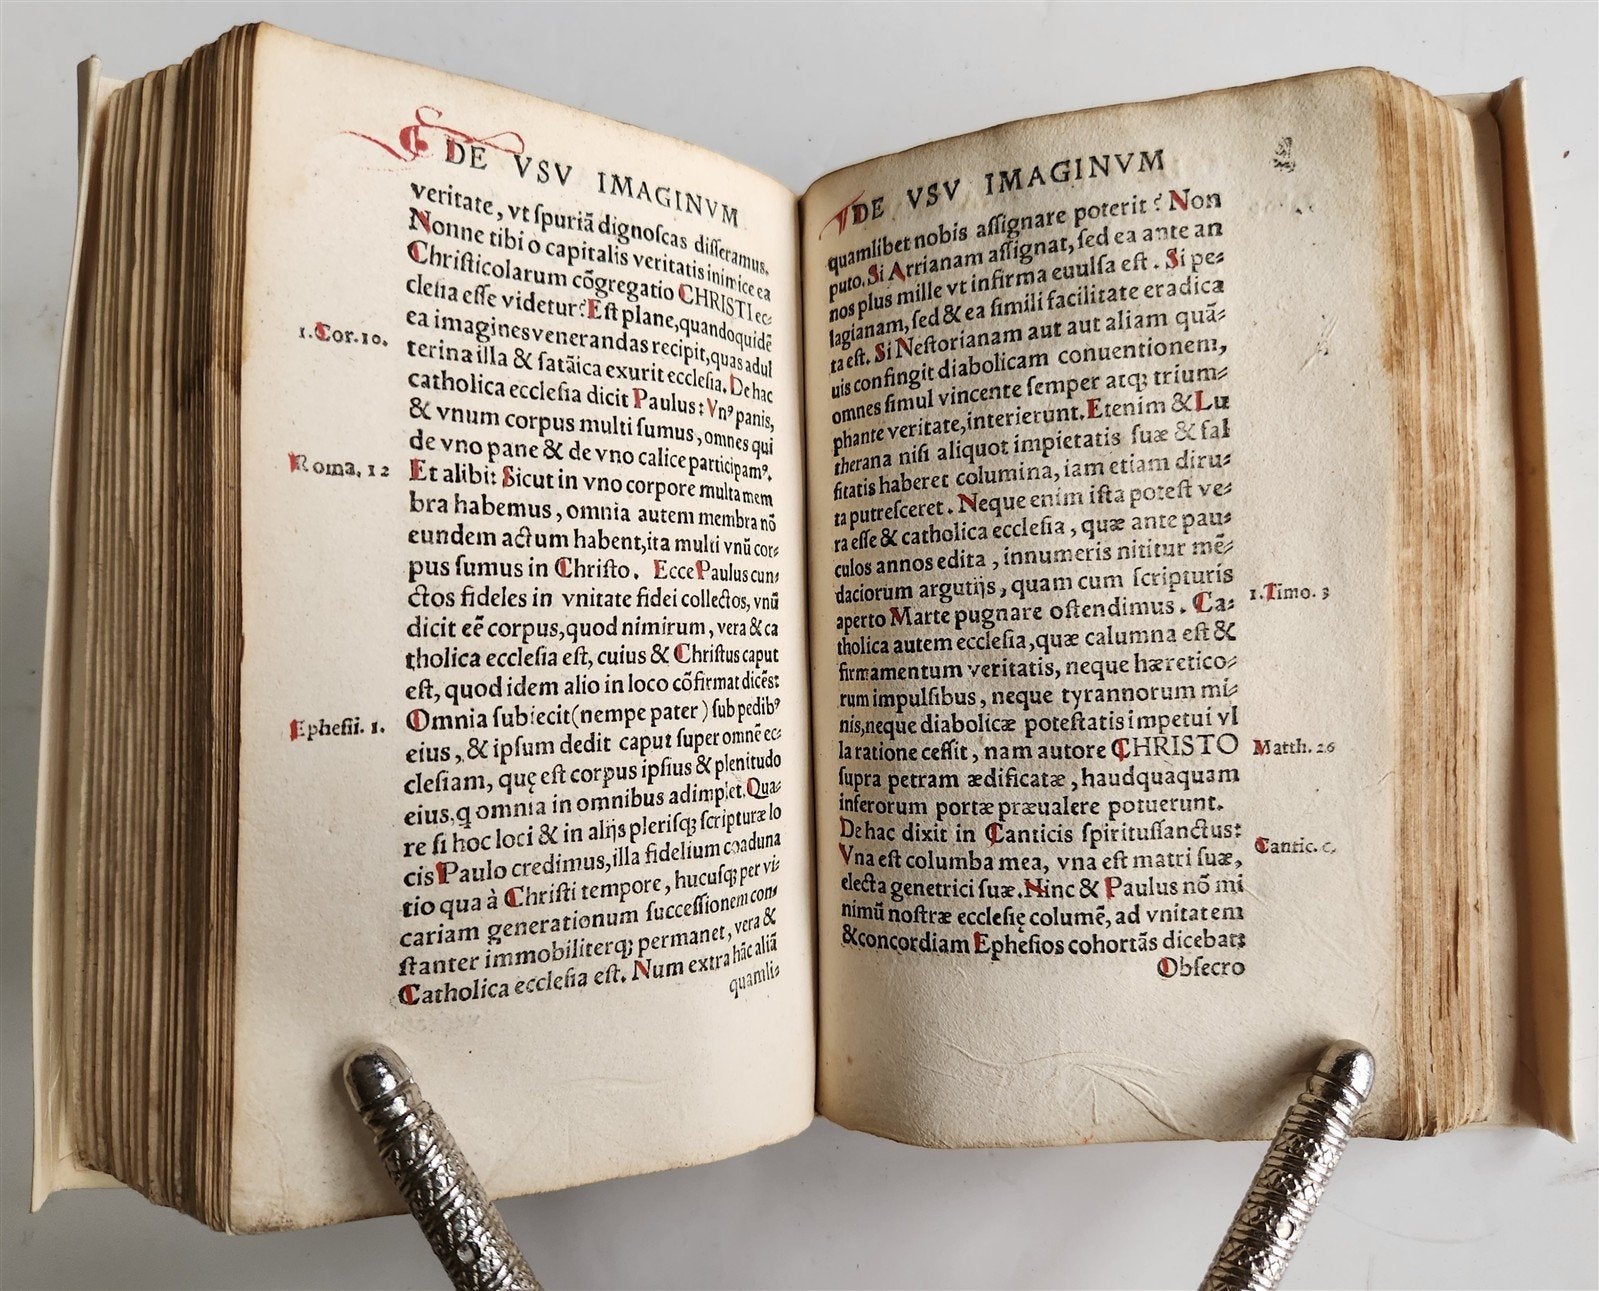 DE VSV IMAGINVM
veritate, vt ſpuriā dignoſcas diſſeramus.
Nonne tibi o capitalis veritatis inimice ea
Chriſticolarum cōgregatio CHRISTI ec⸗
cleſia eſſe videtur? Eſt plane, quandoquidē
ea imagines venerandas recipit, quas adul
1. Cor. 10.
terina illa & ſatāica exurit eccleſia. De hac
catholica eccleſia dicit Paulus: Vnꝰ panis,
& vnum corpus multi ſumus, omnes qui
de vno pane & de vno calice participamꝰ.
Roma. 12
Et alibi: Sicut in vno corpore multa mem
bra habemus, omnia autem membra nō
eundem actum habent, ita multi vnū cor⸗
pus ſumus in Chriſto. Ecce Paulus cun⸗
ctos fideles in vnitate fidei collectos, vnū
dicit eē corpus, quod nimirum, vera & ca
tholica eccleſia eſt, cuius & Chriſtus caput
eſt, quod idem alio in loco cōfirmat dicēs:
Epheſii. 1.
Omnia ſubiecit (nempe pater) ſub pedibꝰ
eius, & ipſum dedit caput ſuper omnē ec⸗
cleſiam, quę eſt corpus ipſius & plenitudo
eius, q omnia in omnibus adimplet. Qua⸗
re ſi hoc loci & in alijs pleriſqꝫ ſcripturæ lo
cis Paulo credimus, illa fidelium coaduna
tio qua à Chriſti tempore, hucuſqꝫ per vi⸗
cariam generationum ſucceſſionem con⸗
ſtanter immobiliterqꝫ permanet, vera &
Catholica eccleſia eſt. Num extra hāc aliā
quamli⸗
DE VSV IMAGINVM
quamlibet nobis aſſignare poterit? Non
puto. Si Arrianam aſſignat, ſed ea ante an
nos plus mille vt infirma euulſa eſt. Si pe⸗
lagianam, ſed & ea ſimili facilitate eradica
ta eſt. Si Neſtorianam aut aut aliam quā⸗
uis confingit diabolicam conuentionem,
omnes ſimul vincente ſemper atqꝫ trium⸗
phante veritate, interierunt. Etenim & Lu
therana niſi aliquot impietatis ſuæ & fal
ſitatis haberet columina, iam etiam diru⸗
ta putreſceret. Neque enim iſta poteſt ve⸗
ra eſſe & catholica eccleſia, quæ ante pau⸗
culos annos edita, innumeris nititur mē⸗
daciorum argutijs, quam cum ſcripturis
aperto Marte pugnare oſtendimus. Ca⸗
1. Timo. 3
tholica autem eccleſia, quæ calumna eſt &
firmamentum veritatis, neque hæretico⸗
rum impulſibus, neque tyrannorum mi⸗
nis, neque diabolicæ poteſtatis impetui vl
la ratione ceſſit, nam autore CHRISTO
Matth. 26
ſupra petram ædificatæ, haudquaquam
inferorum portæ præualere potuerunt.
De hac dixit in Canticis ſpirituſſanctus:
Cantic. 6.
Vna eſt columba mea, vna eſt matri ſuæ,
electa genetrici ſuæ. Ninc & Paulus nō mi
nimū noſtræ eccleſię columē, ad vnitatem
& concordiam Epheſios cohortās dicebat:
Obſecro